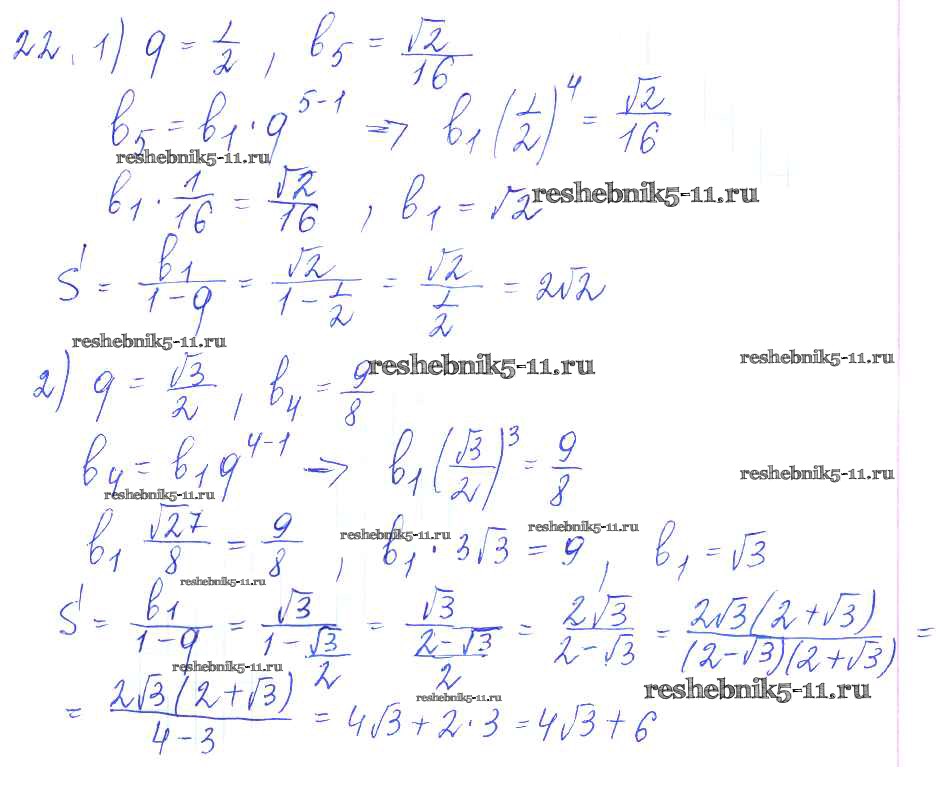 22. 1) q = 1/2, b₅ = √2/16
b₅ = b₁ · q⁵⁻¹ => b₁(1/2)⁴ = √2/16
reshebnik5-11.ru
b₁ · 1/16 = √2/16, b₁ = √2 reshebnik5-11.ru
S = b₁/(1-q) = √2/(1-1/2) = √2/(1/2) = 2√2
reshebnik5-11.ru
reshebnik5-11.ru reshebnik5-11.ru
2) q = √3/2, b₄ = 9/8
b₄ = b₁q⁴⁻¹ => b₁(√3/2)³ = 9/8 reshebnik5-11.ru
reshebnik5-11.ru
b₁ √27/8 = 9/8, b₁ · 3√3 = 9, b₁ = √3
reshebnik5-11.ru reshebnik5-11.ru
reshebnik5-11.ru
S = b₁/(1-q) = √3/(1-√3/2) = √3/((2-√3)/2) = 2√3/(2-√3) = 2√3(2+√3)/((2-√3)(2+√3)) =
reshebnik5-11.ru reshebnik5-11.ru reshebnik5-11.ru
= 2√3(2+√3)/(4-3) = 4√3 + 2·3 = 4√3 + 6